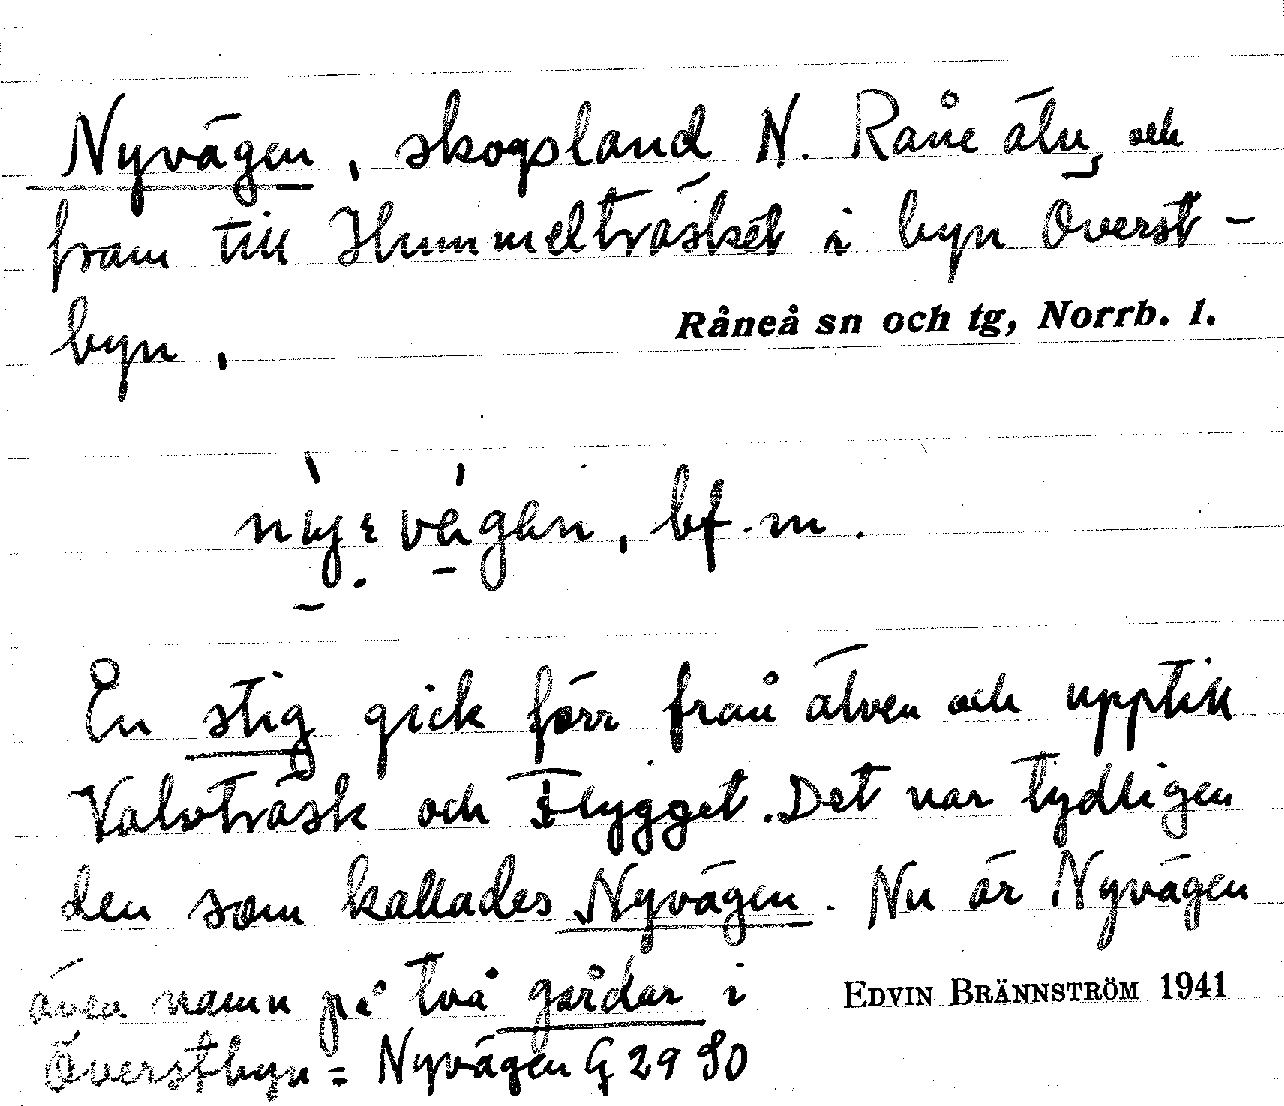 Nyvägen, skogsland N. Råne älv, och
fram till Hummelträsket i byn Överst-
byn,
Råneå sn och tg, Norrb. l.
bf. m.
En stig gick förr från älven och upp till
Valvträsk och Flygget. Det var tydligen
den som kallades Nyvägen. Nu är Nyvägen
även namn på två gårdar i
EDVIN BRÄNNSTRÖM 1941
Överstbyn = Nyvägen G 29 SO